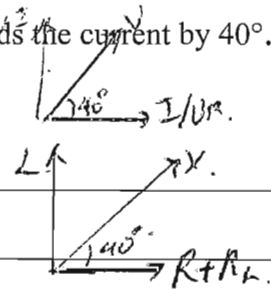 ds the current by 40°.
V
40° I/VR.
L X.
40° R+RL.